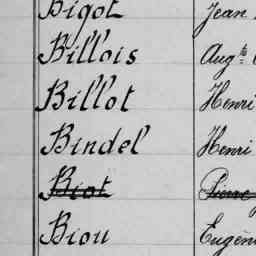 Bigot Jean
Billois Aug.te
Billot Henri
Bindel Henri
Biot Pierre
Biou Eugène